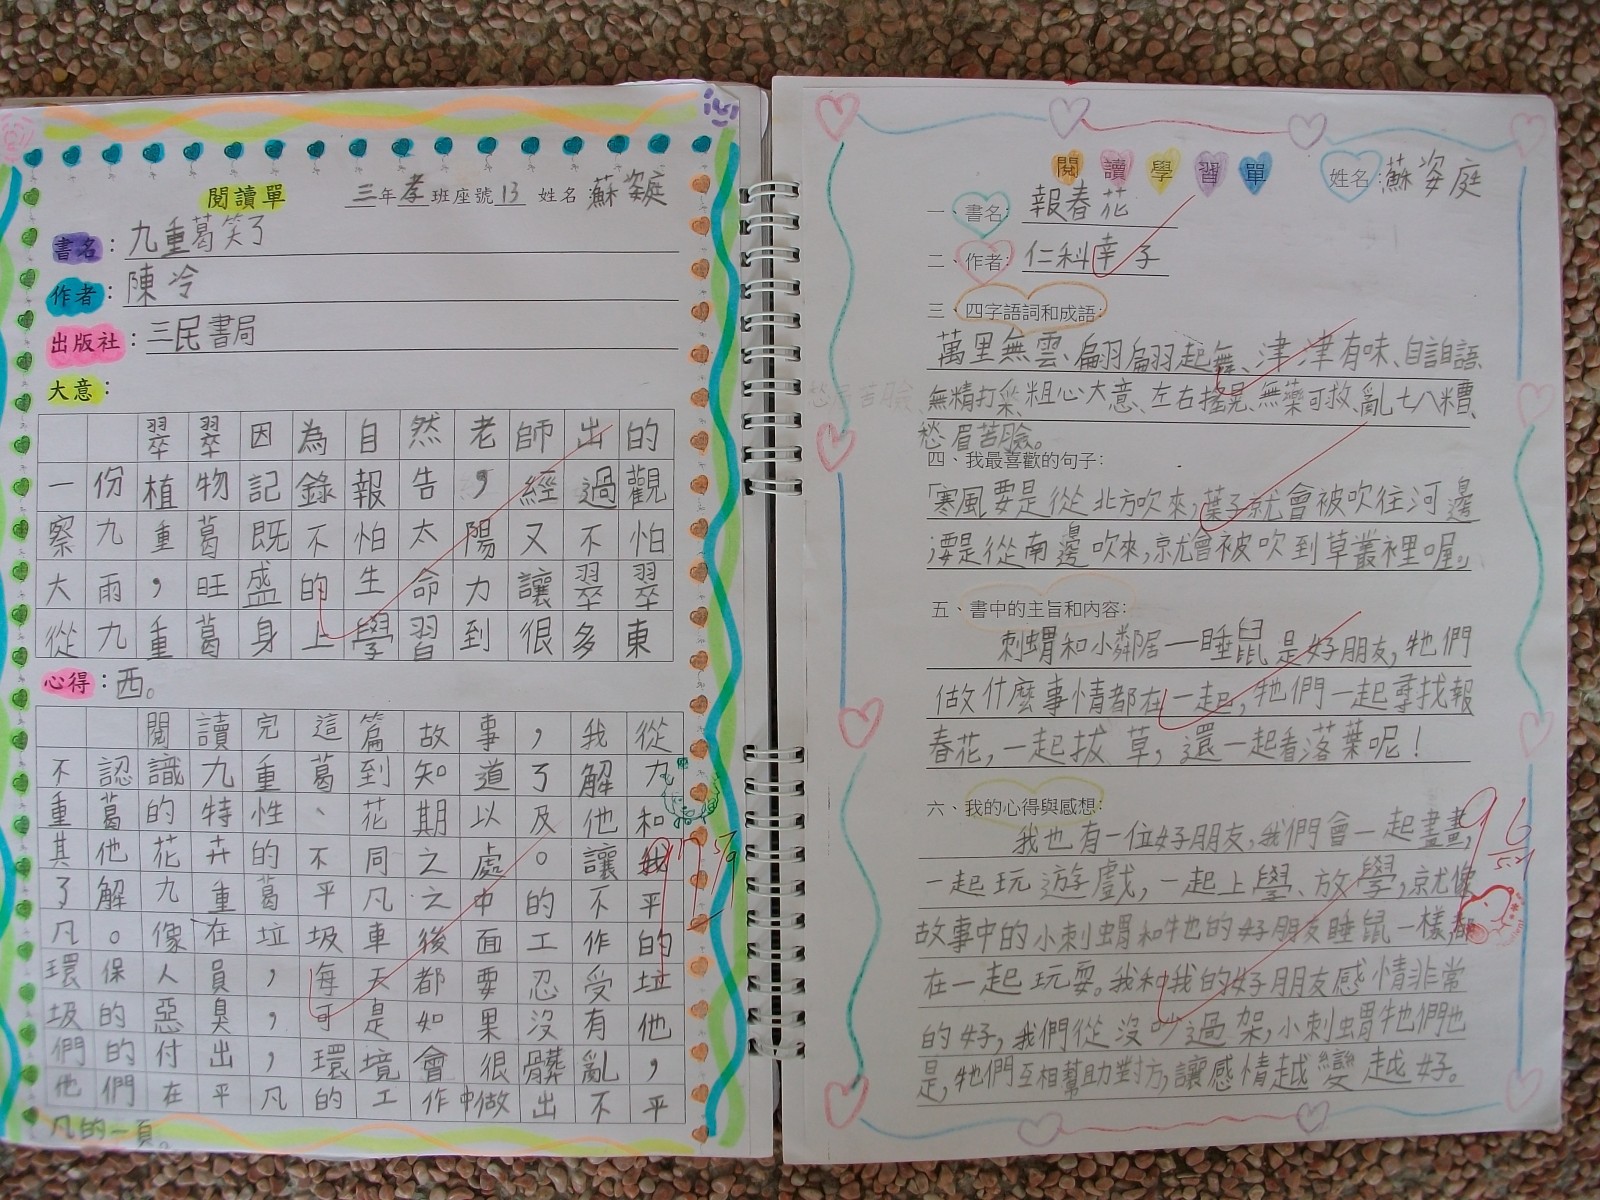 閱讀單 三年孝班座號13 姓名:蘇姿庭
書名:九重葛笑了
作者:陳冷
出版社:三民書局
大意:
翠翠因為自然老師出的
一份植物記錄報告,經過觀
察九重葛既不怕太陽又不怕
大雨,旺盛的生命力讓翠翠
從九重葛身上學習到很多東
心得:西。
閱讀完這篇故事,我從
不認識九重葛到知道了解九
重葛的特性、花期以及他和
其他花卉的不同之處。讓我
了解九重葛平凡之中的不平
凡。像在垃圾車後面工作的
環保人員,每天都要忍受垃
圾的惡臭,可是如果沒有他
們的付出,環境會很髒亂,
他們在平凡的工作中做出不平
凡的一頁。
閱讀學習單 姓名:蘇姿庭
一、書名:報春花
二、作者:仁科幸子
三、四字語詞和成語:
萬里無雲、翩翩起舞、津津有味、自言自語、
無精打采、粗心大意、左右搖晃、無藥可救、亂七八糟、
愁眉苦臉。
四、我最喜歡的句子:
「寒風要是從北方吹來,葉子就會被吹往河邊
要是從南邊吹來,就會被吹到草叢裡喔。」
五、書中的主旨和內容:
刺蝟和小鄰居一睡鼠是好朋友,牠們
做什麼事情都在一起,牠們一起尋找報
春花,一起拔草,還一起看落葉呢!
六、我的心得與感想:
我也有一位好朋友,我們會一起畫畫,
一起玩遊戲,一起上學、放學,就像
故事中的小刺蝟和牠的好朋友睡鼠一樣,都
在一起玩耍。我和我的好朋友感情非常
的好,我們從沒吵過架,小刺蝟牠們也
是,牠們互相幫助對方,讓感情越變越好。
96
5/21